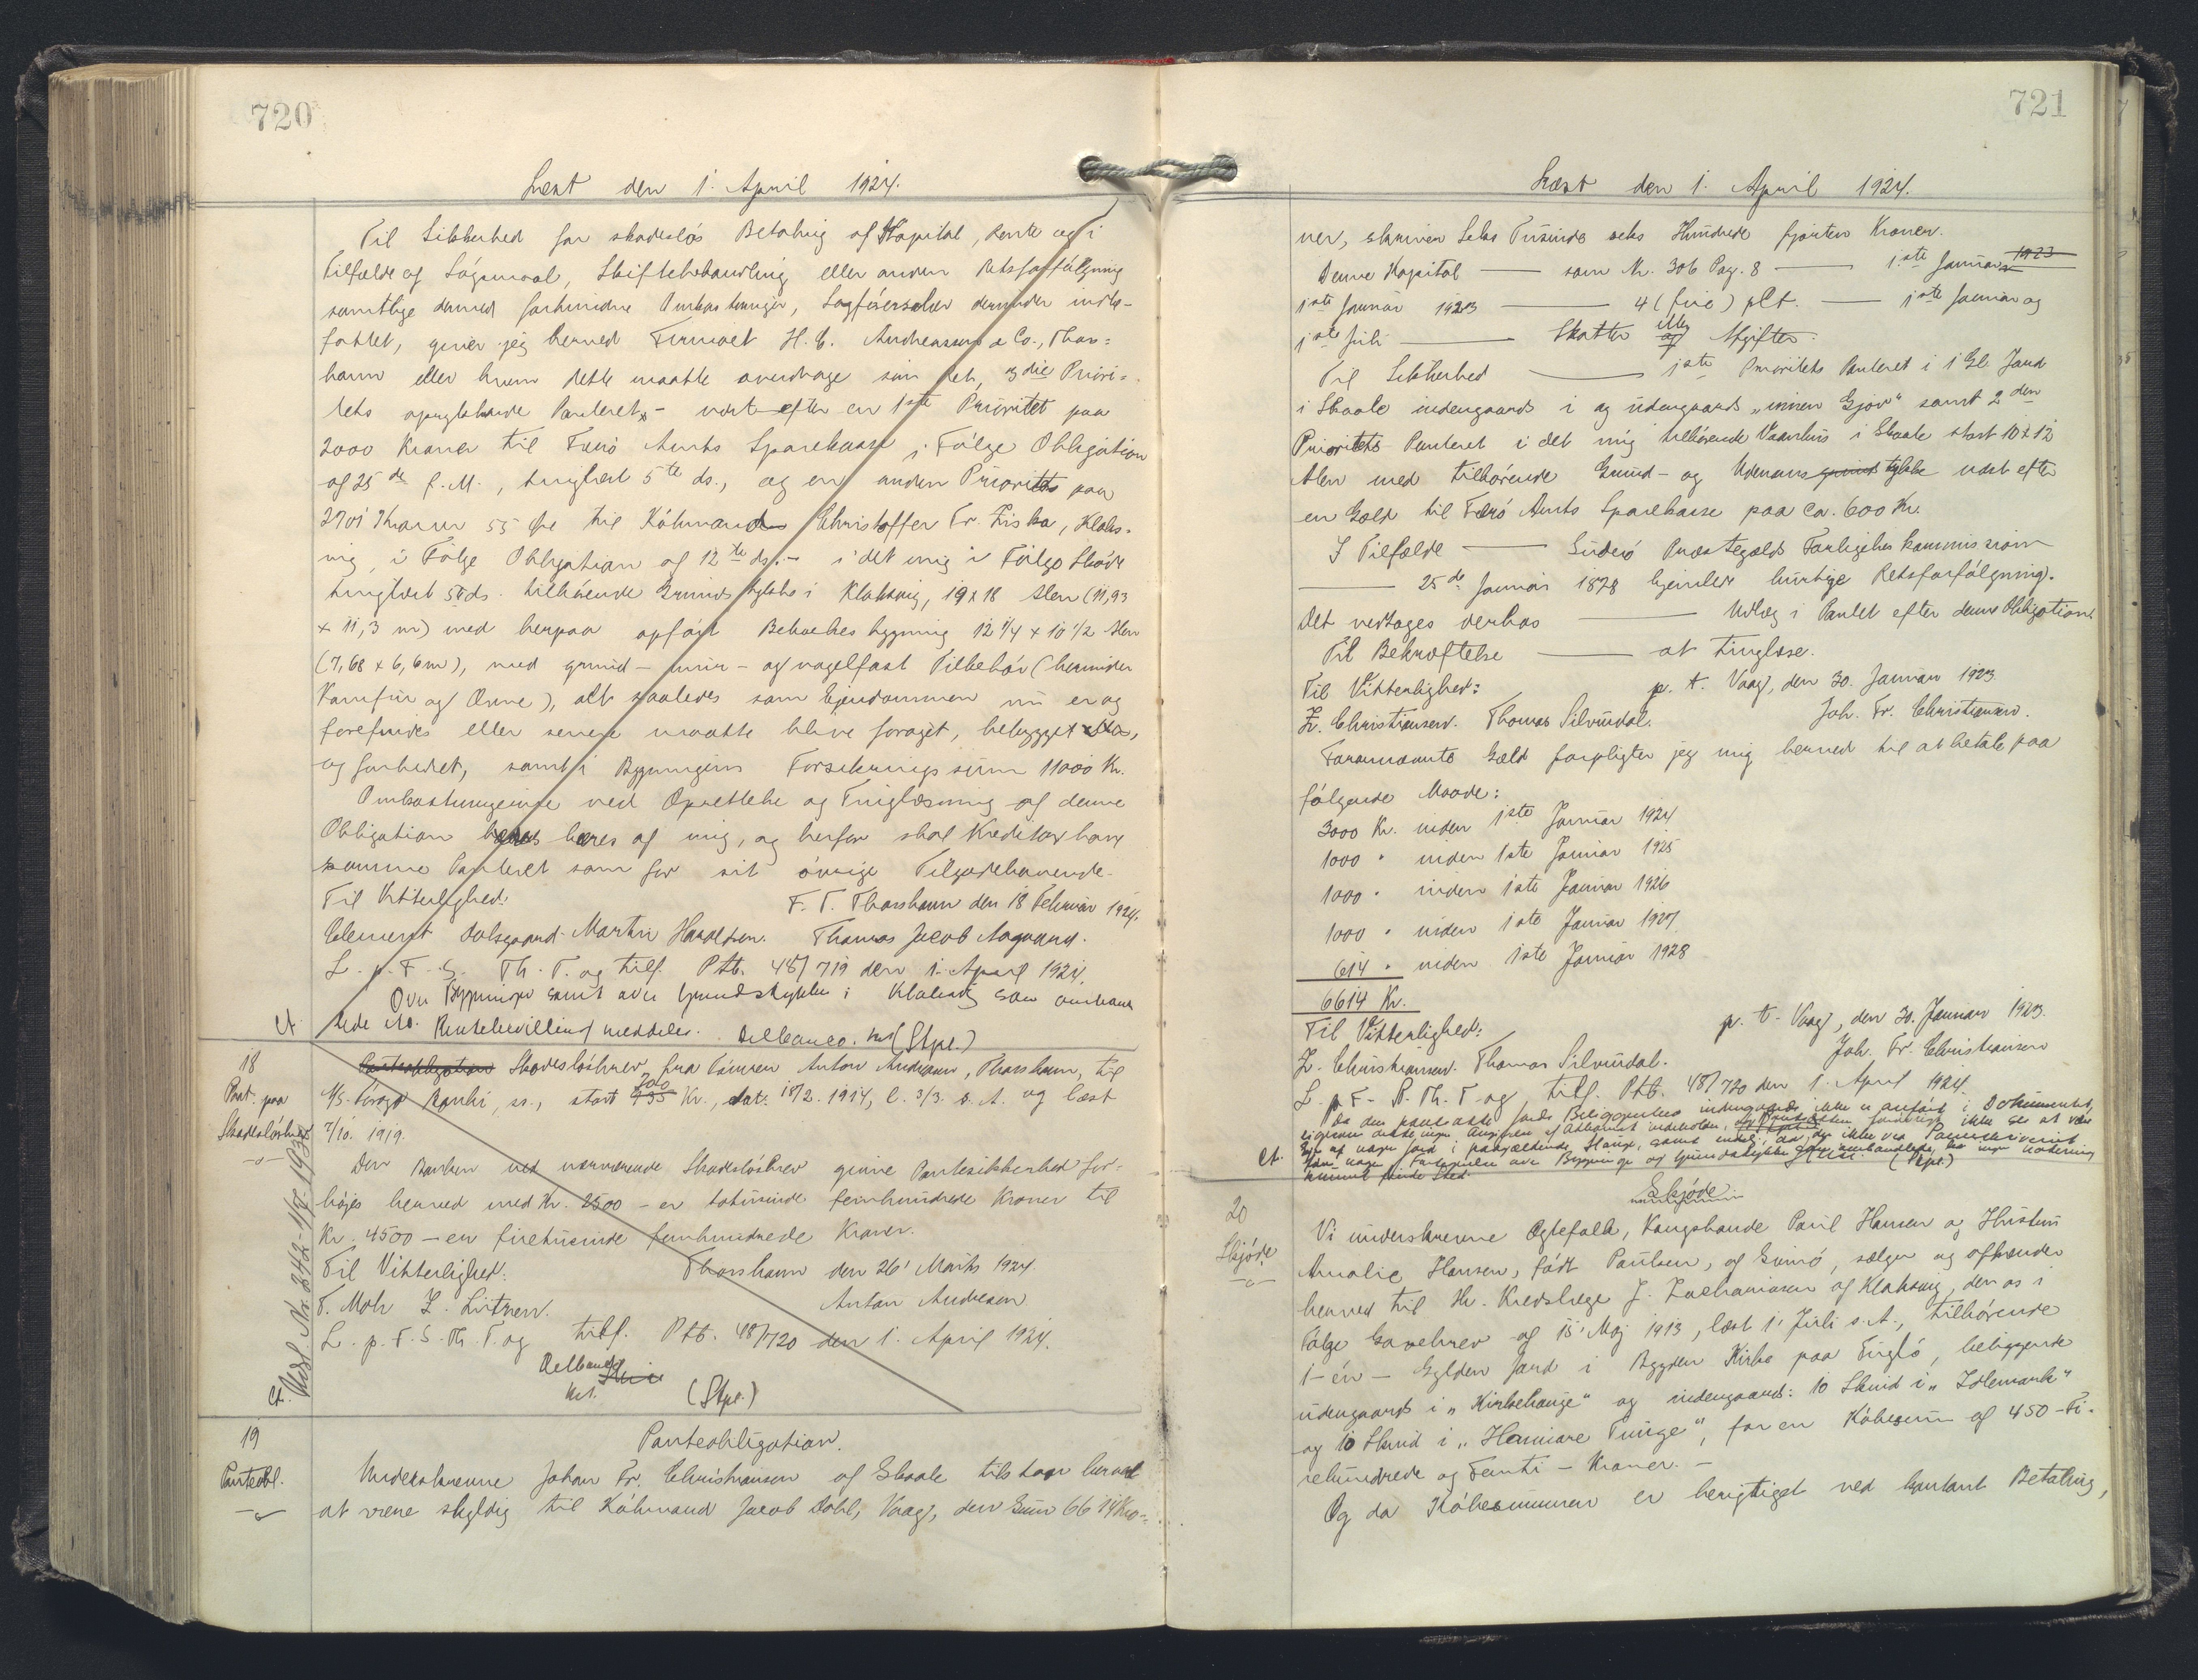 720
Læst den 1. April 1924.
Til Sikkerhed for skadesløs Betaling af Kapital, Rente og i
Tilfælde af Søgsmaal, Skiftebehandling eller anden Retsforfølgning
samtlige dermed forbundne Omkostninger, Sagførersalær derunder indbe-
fattet, giver jeg herved Firmaet H. C. Andreassen & Co., Thors=
havn eller hvem dette maatte overdrage sin Ret, 3die Priori=
tets oprykkende Panteret - næst efter en 1ste Prioritet paa
2000 Kroner til Færø Amts Sparekasse i Følge Obligation
af 25de f. M., tinglæst 5te ds., og en anden Prioritet paa
2701 Kroner 55 Øre til Købmand Christoffer Fr. Fiska, Klaks-
vig, i Følge Obligation af 12te ds. - i det mig i Følge Skøde
tinglæst 5te ds. tilhørende Grundstykke i Klaksvig, 19 x 18 Alen (11,93
x 11,3 m) med herpaa opført Beboelsesbygning 12 1/4 x 10 1/2 Alen
(7,68 x 6,6 m), med grund- mur- og nagelfast Tilbehør (herunder
Komfur og Ovne), alt saaledes som Ejendommen nu er og
forefindes eller senere maatte blive forøget, bebygget
og forbedret, samt i Bygningens Forsikringssum 11000 Kr.
Omkostningerne ved Oprettelse og Tinglæsning af denne
Obligation bæres af mig, og herfor skal Kreditor have
samme Panteret som for sit øvrige Tilgodehavende.
Til Vitterlighed: F. T. Thorshavn den 18 Februar 1924.
Clement Dalsgaard. Martin Haraldsen. Thomas Jacob Aagaard.
L. p. F. S. Th. T. og tilf. Ptb. 48/719 den 1. April 1924.
Over Bygninger samt over Grundstykker i Klaksvig som ombehand
lede No. Rentebevilling meddeles. Delbanco. kst (Stpl.)
Ct.
18
Pant. paa
Skadesløsbrev
Pantobligation Skadesløsbrev fra Damen Anton Andreasen, Thorshavn, til
A/S. Færø Banki, ss., stort 2000 Kr., dat. 18/2. 1914, l. 3/3. s. A. og læst
7/10. 1919.
Den Banken ved nærværende Skadesløsbrev givne Pantesikkerhed for-
højes herved med Kr. 2500 - er totusinde femhundrede Kroner til
Kr. 4500 - er firetusinde femhundrede Kroner.
Til Vitterlighed: Thorshavn den 26' Marts 1924
T. Mohr Z. Lützen. Anton Andreasen
L. p. F. S. Th. T. og tilf. Ptb. 48/720 den 1. April 1924.
Delbanco
kst. (Stpl.)
Ct.
19
Panteobl.
Panteobligation.
Underskrevne Johan Fr. Christiansen af Skaale tilstaar herved
at være skyldig til Købmand Jacob Dahl, Vaag, den Sum 6614 Kro-
721
Læst den 1. April 1924.
ner, skriver Seks Tusinde seks Hundrede fjorten Kroner.
Denne Kapital — som Nr. 306 Pag. 8 — 1ste Januar 1923
1ste Januar 1923 — 4 (fire) pCt. — 1ste Januar og
1ste Juli — Skatter og Afgifter.
Til Sikkerhed — 1ste Prioritets Panteret i 1 Gl. Jord
i Skaale indengaards i og udengaards „innen Gjov" samt 2den
Prioritets Panteret i det mig tilhørende Vaanhus i Skaale stort 10 x 12
Alen med tilhørende Grund- og Udenomsgrundstykke næst efter
en Gæld til Færø Amts Sparekasse paa ca. 600 Kr.
I Tilfælde — Suderø Præstegælds Forligelseskommission
— 25de Januar 1828 hjemlede hurtige Retsforfølgning.
Det vedtages derhos — Udlæg i Pantet efter denne Obligation.
Til Bekræftelse — at tinglæse.
Til Vitterlighed: p. t. Vaag, den 30. Januar 1923.
Z. Christiansen. Thomas Silvurdal. Joh. Fr. Christiansen.
Forannævnte Gæld forpligter jeg mig herved til at betale paa
følgende Maade:
3000 Kr. inden 1ste Januar 1924
1000 " inden 1ste Januar 1925
1000 " inden 1ste Januar 1926
1000 " inden 1ste Januar 1927
614 " inden 1ste Januar 1928
6614 Kr.
Til Vitterlighed: p. t. Vaag, den 30. Januar 1923.
Z. Christiansen. Thomas Silvurdal. Joh. Fr. Christiansen
L. p. F. S. Th. T. og tilf. Ptb. 48/720 den 1. April 1924.
Ct.
(Stpl.)
20
Skjøde.
Skjøde
Vi underskrevne Ægtefolk, Kongsbonde Poul Hansen og Hustru
Amalie Hansen, født Poulsen, af Svinø, sælger og afhænder
herved til Hr. Kredslæge J. Zachariasen af Klaksvig, den os i
Følge Gavebrev af 15' Maj 1913, læst 1' Juli s. A., tilhørende
1- én - Gylden Jord i Bygden Kirke paa Fuglø, beliggende
udengaards i „Kirkehauge" og indengaards: 10 Skind i „Idlemark"
og 10 Skind i „Hamare Tunge", for en Købesum af 450 - Fi-
rehundrede og Femti - Kroner. -
Og da Købesummen er berigtiget ved kontant Betaling,